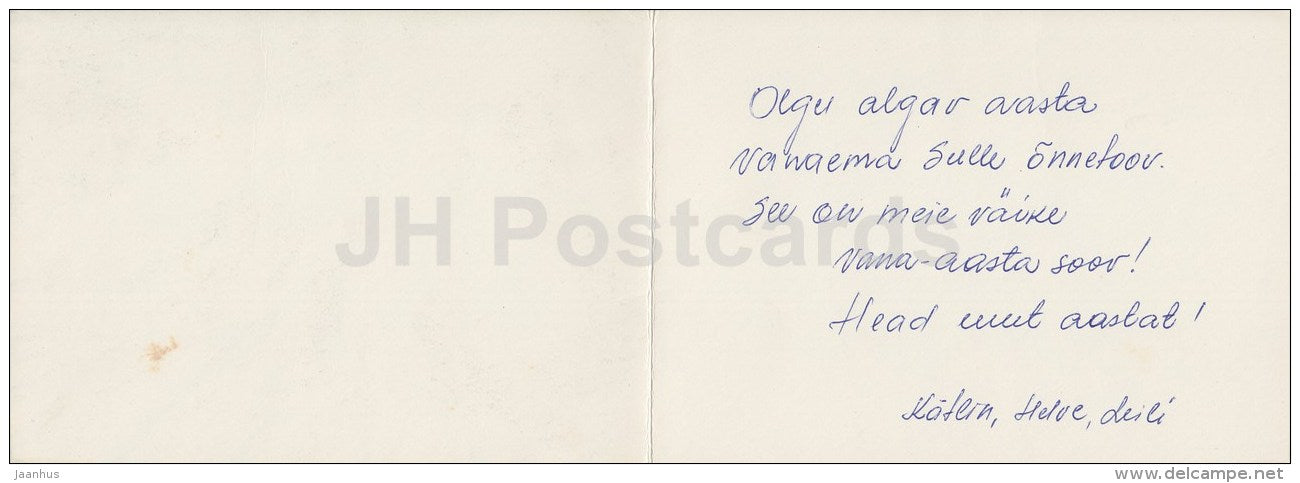 Olgu algav aasta
vanaema Sulle õnnetoov.
See on meie väike
vana-aasta soov!
Head uut aastat!
Kätlin, Helve, Leili
JH Postcards
jaanhus
www.delcampe.net